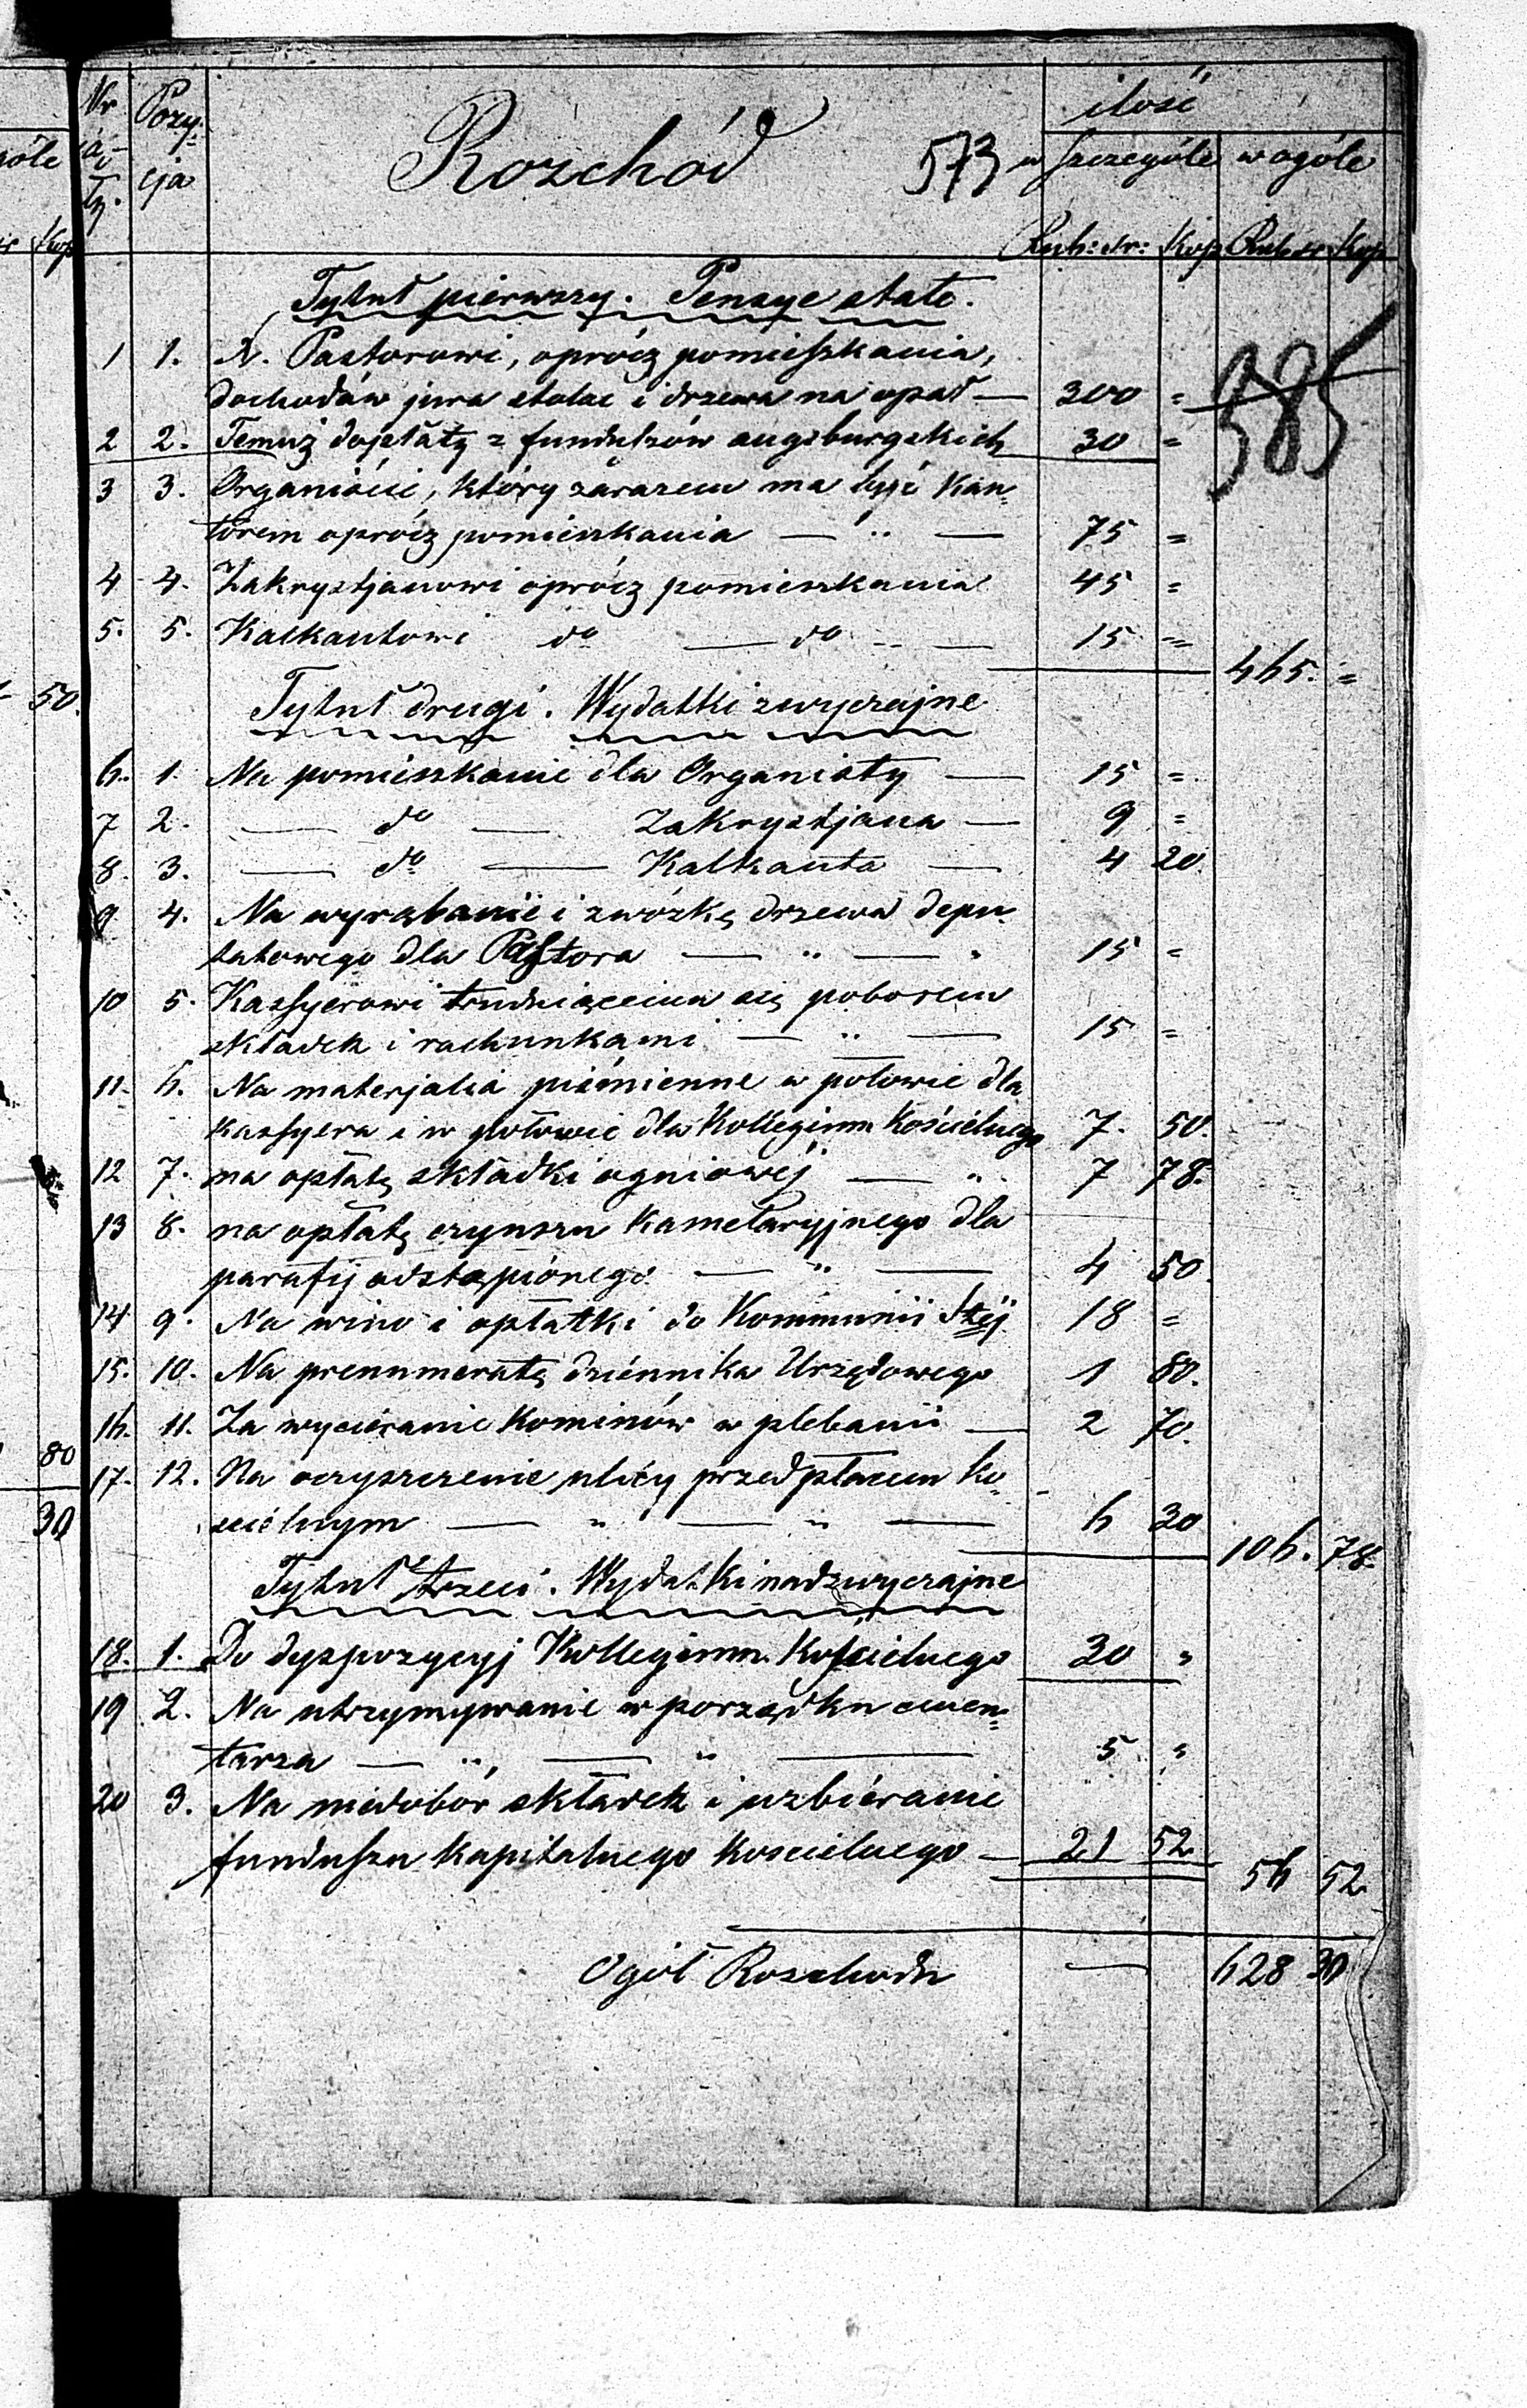 Nr Pozy- ilość
cja Rozchód 573 w szczególe w ogóle
Rub: sr: Kop Rub sr Kop
Tytuł pierwszy. Pensye stałe.
385
1 1. X. Pastorowi, oprócz pomieszkania,
dochodów jura stolae i drzewa na opał — 300 =
2 2. Temuż dopłaty z funduszów augsburgskich 30 =
3 3. Organiście, który zarazem ma być Kan=
torem oprócz pomieszkania — „ — 75 =
4 4. Zakrystjanowi oprócz pomieszkania 45 =
5. 5. Kalkantowi do — do — 15 =
465. =
Tytuł drugi. Wydatki zwyczajne
6. 1. Na pomieszkanie dla Organisty — 15 =
7 2. — do — Zakrystjana — 9 =
8. 3. — do — Kalkanta — 4 20.
9 4. Na wyrąbanie i zwózkę drzewa depu=
tatowego dla Pastora — „ — „ 15 =
10 5. Kassyerowi trudniącemu się poborem
składek i rachunkami — „ — 15 =
11. 6. Na materjalia piśmienne w połowie dla
kassyera i w połowie dla Kollegium Kościelnego 7. 50.
12 7. na opłatę składki ogniowej — „ 7 78.
13 8. na opłatę czynszu Kamelaryjnego dla
parafij odstąpionego — „ — 4 50.
14 9. Na wino i opłatki do Kommunii Stéj 18 =
15. 10. Na prenumeratę dziennika Urzędowego 1 80.
16. 11. Za wycieranie Kominów w plebanii — 2 70.
17. 12. Na oczyszczenie ulicy przed placem Ko=
ścielnym — „ — „ — 6 30
106. 78.
Tytuł trzeci. Wydatki nadzwyczajne
18. 1. Do dyspozycyj Kollegium Kościelnego 30 „
19 2. Na utrzymywanie w porządku cmen=
tarza — „ — „ — 5 „
20 3. Na niedobór składek i uzbiéranie
funduszu Kapitalnego Kościelnego — 21 52
56 52
Ogół Rozchodu — 628 30
50.
80
30